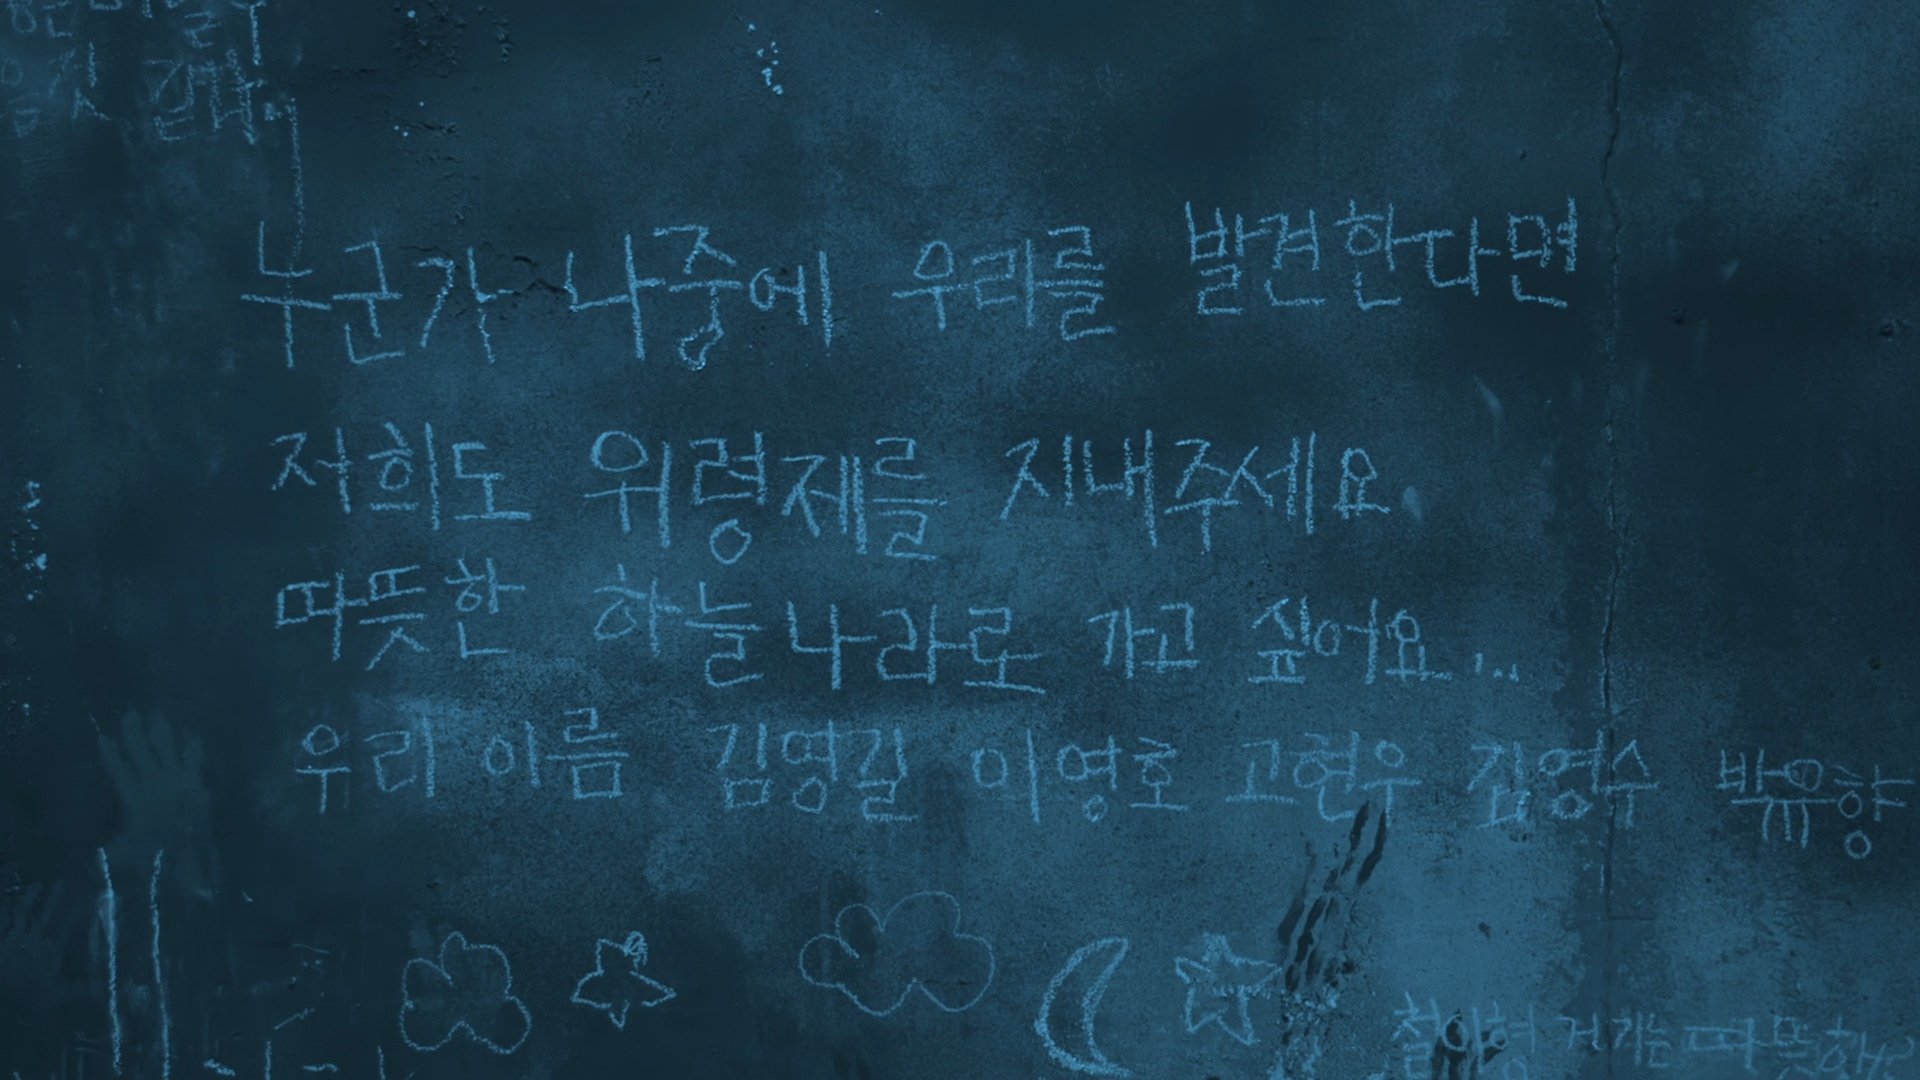 같다
누군가 나중에 우리를 발견한다면
저희도 위령제를 지내주세요
따뜻한 하늘나라로 가고 싶어요...
우리 이름 김영길 이영호 고현우 김영수 박유향
철이형 거기는 따뜻해?